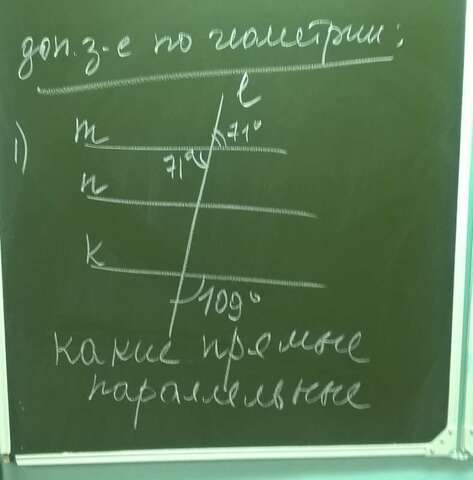 доп. з-е по геометрии:
l
1)
m
71°
71°
n
k
109°
какие прямые
параллельные